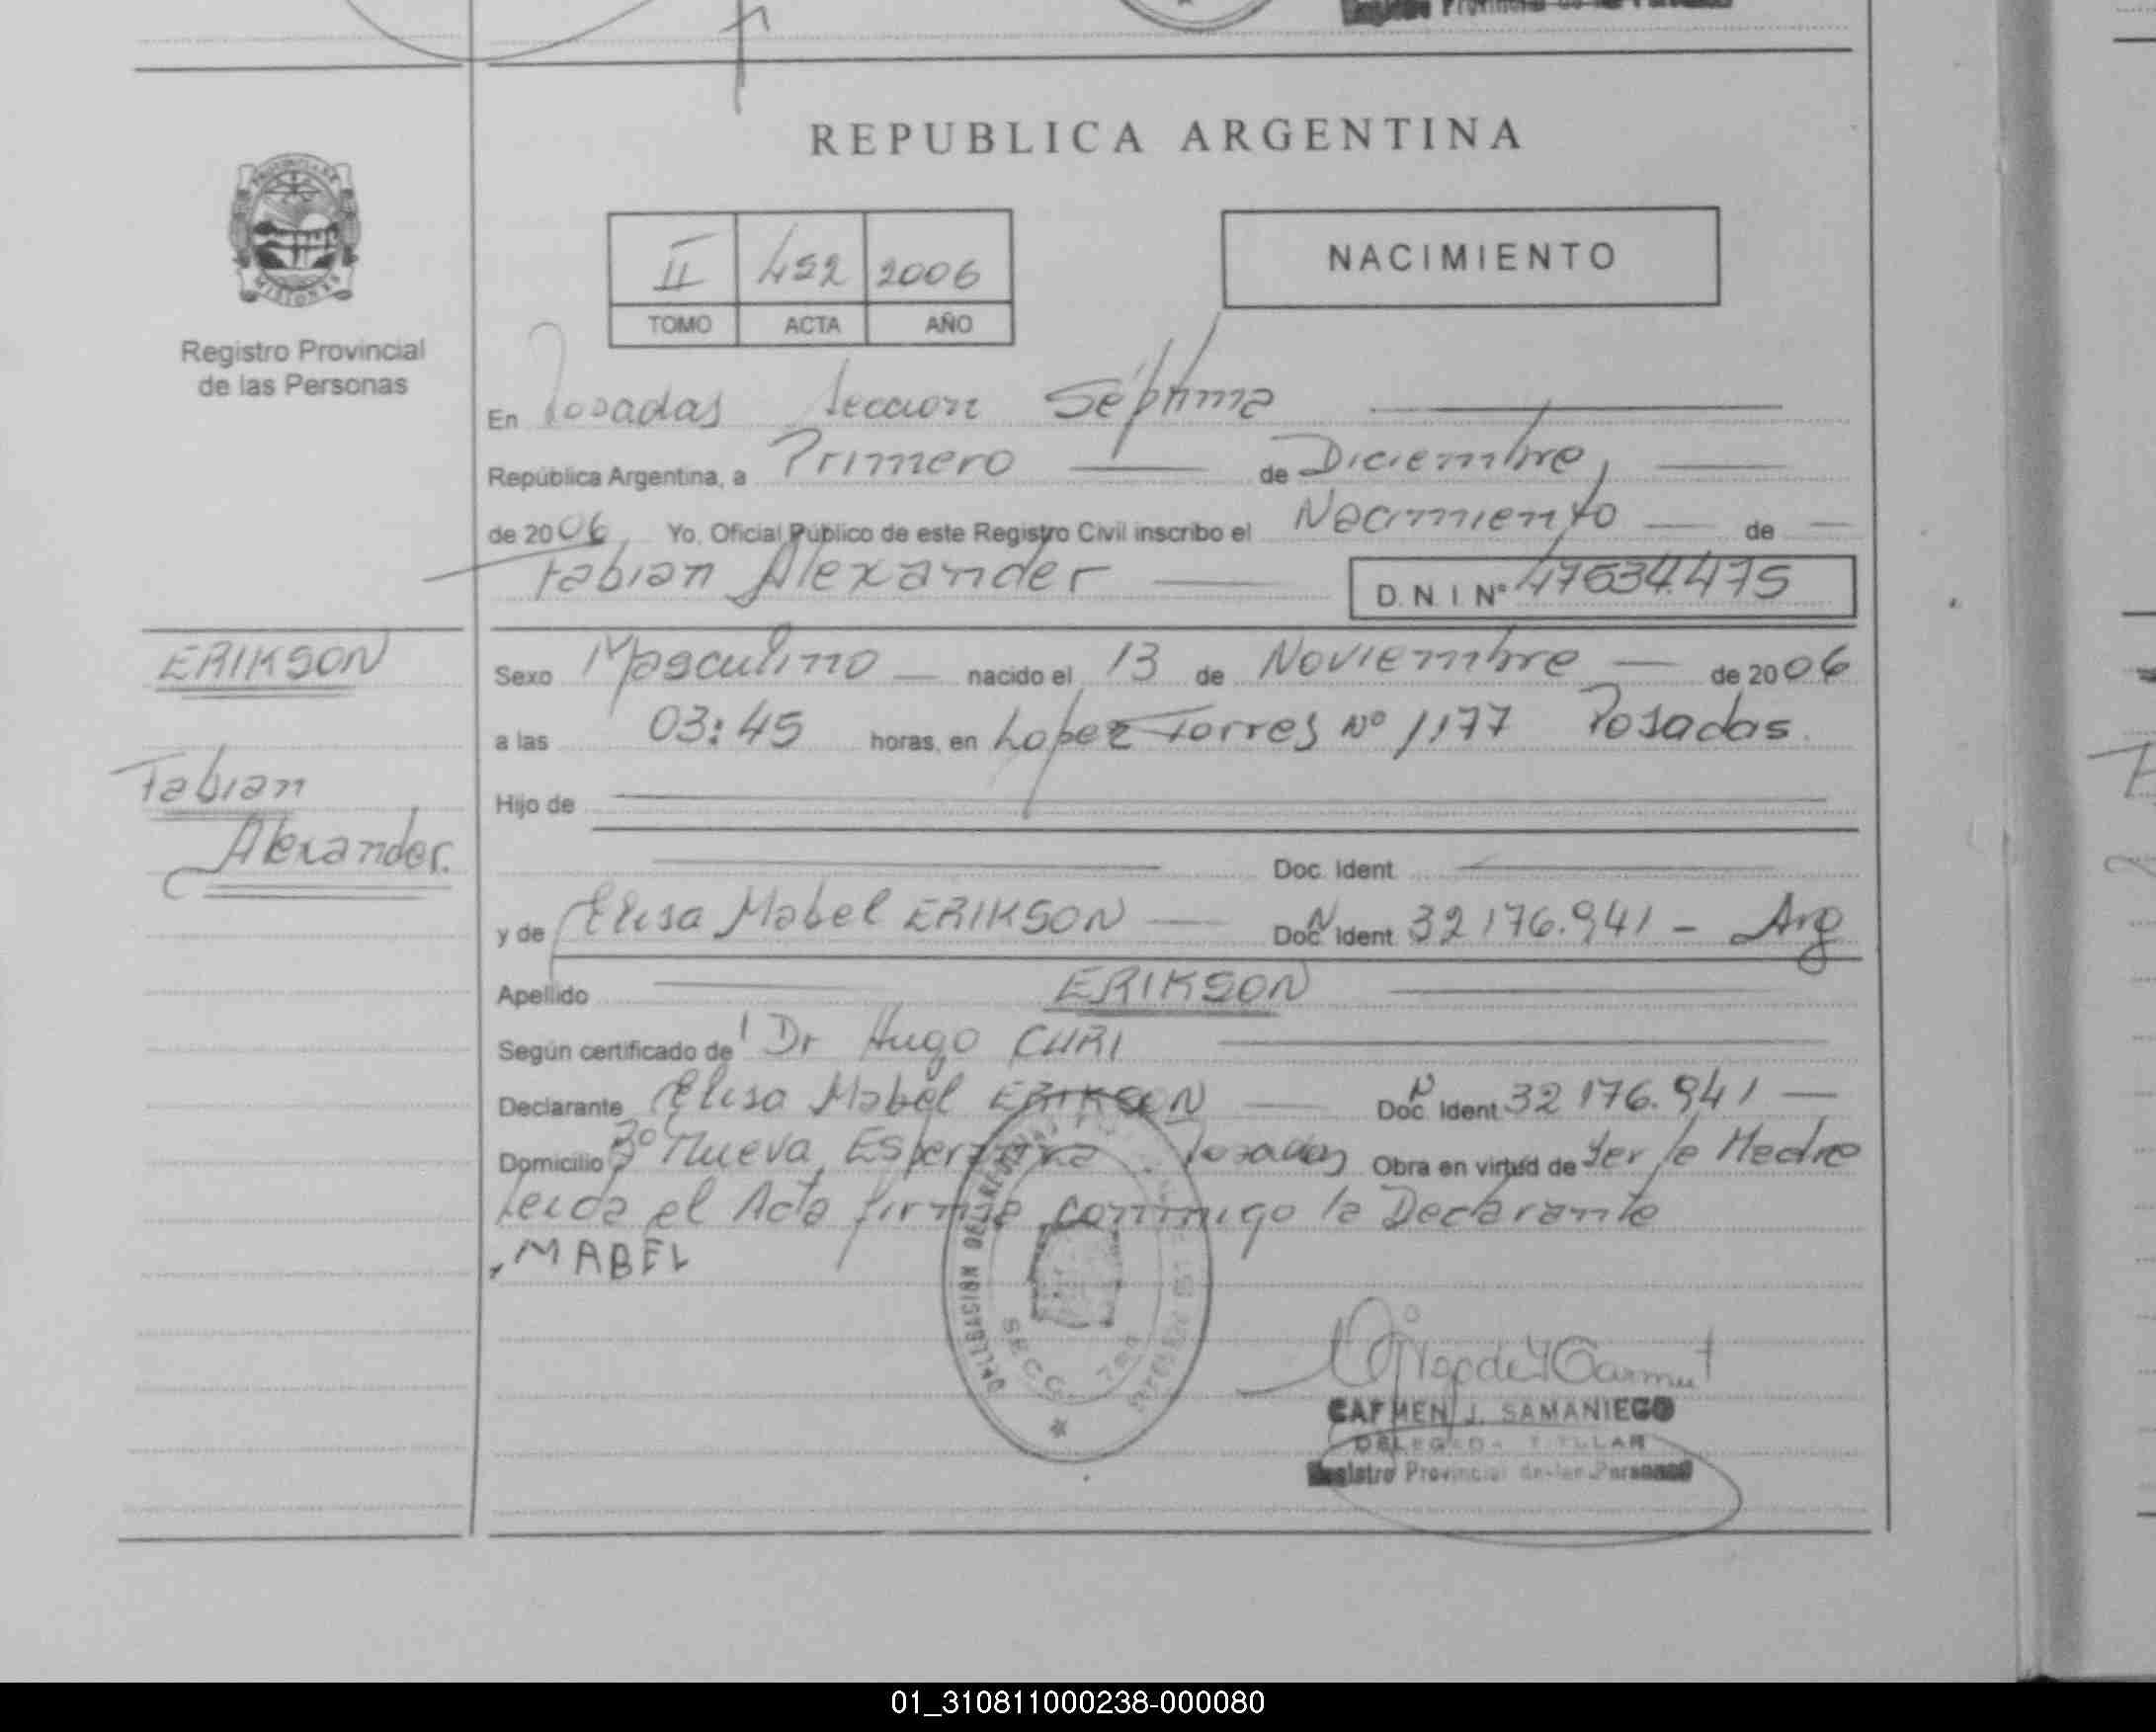 REPUBLICA ARGENTINA
PROVINCIA DE
MISIONES
Registro Provincial
de las Personas
II 452 2006
TOMO ACTA AÑO
NACIMIENTO
En Posadas Seccion Séptima
República Argentina, a Primero de Diciembre,
de 2006 Yo, Oficial Público de este Registro Civil inscribo el Nacimiento de
Fabian Alexander D.N.I Nº 47534.475
ERIKSON
Fabian
Alexander.
Sexo Masculino nacido el 13 de Noviembre de 2006
a las 03:45 horas, en Lopez Torres Nº 1177 Posadas.
Hijo de
Doc. Ident.
y de Elisa Mabel ERIKSON Doc. Ident. 32176.941 - Arg
Apellido ERIKSON
Según certificado de Dr Hugo CURI
Declarante Elisa Mabel ERIKSON Doc. Ident. 32176.941
Domicilio Bº Nueva Esperanza. Posadas Obra en virtud de Ser la Madre
Leida el Acta firma conmigo la Declarante
MABEL
SECC. 7ma
CARMEN J. SAMANIEGO
DELEGADA TITULAR
Registro Provincial de las Personas
01_310811000238-000080